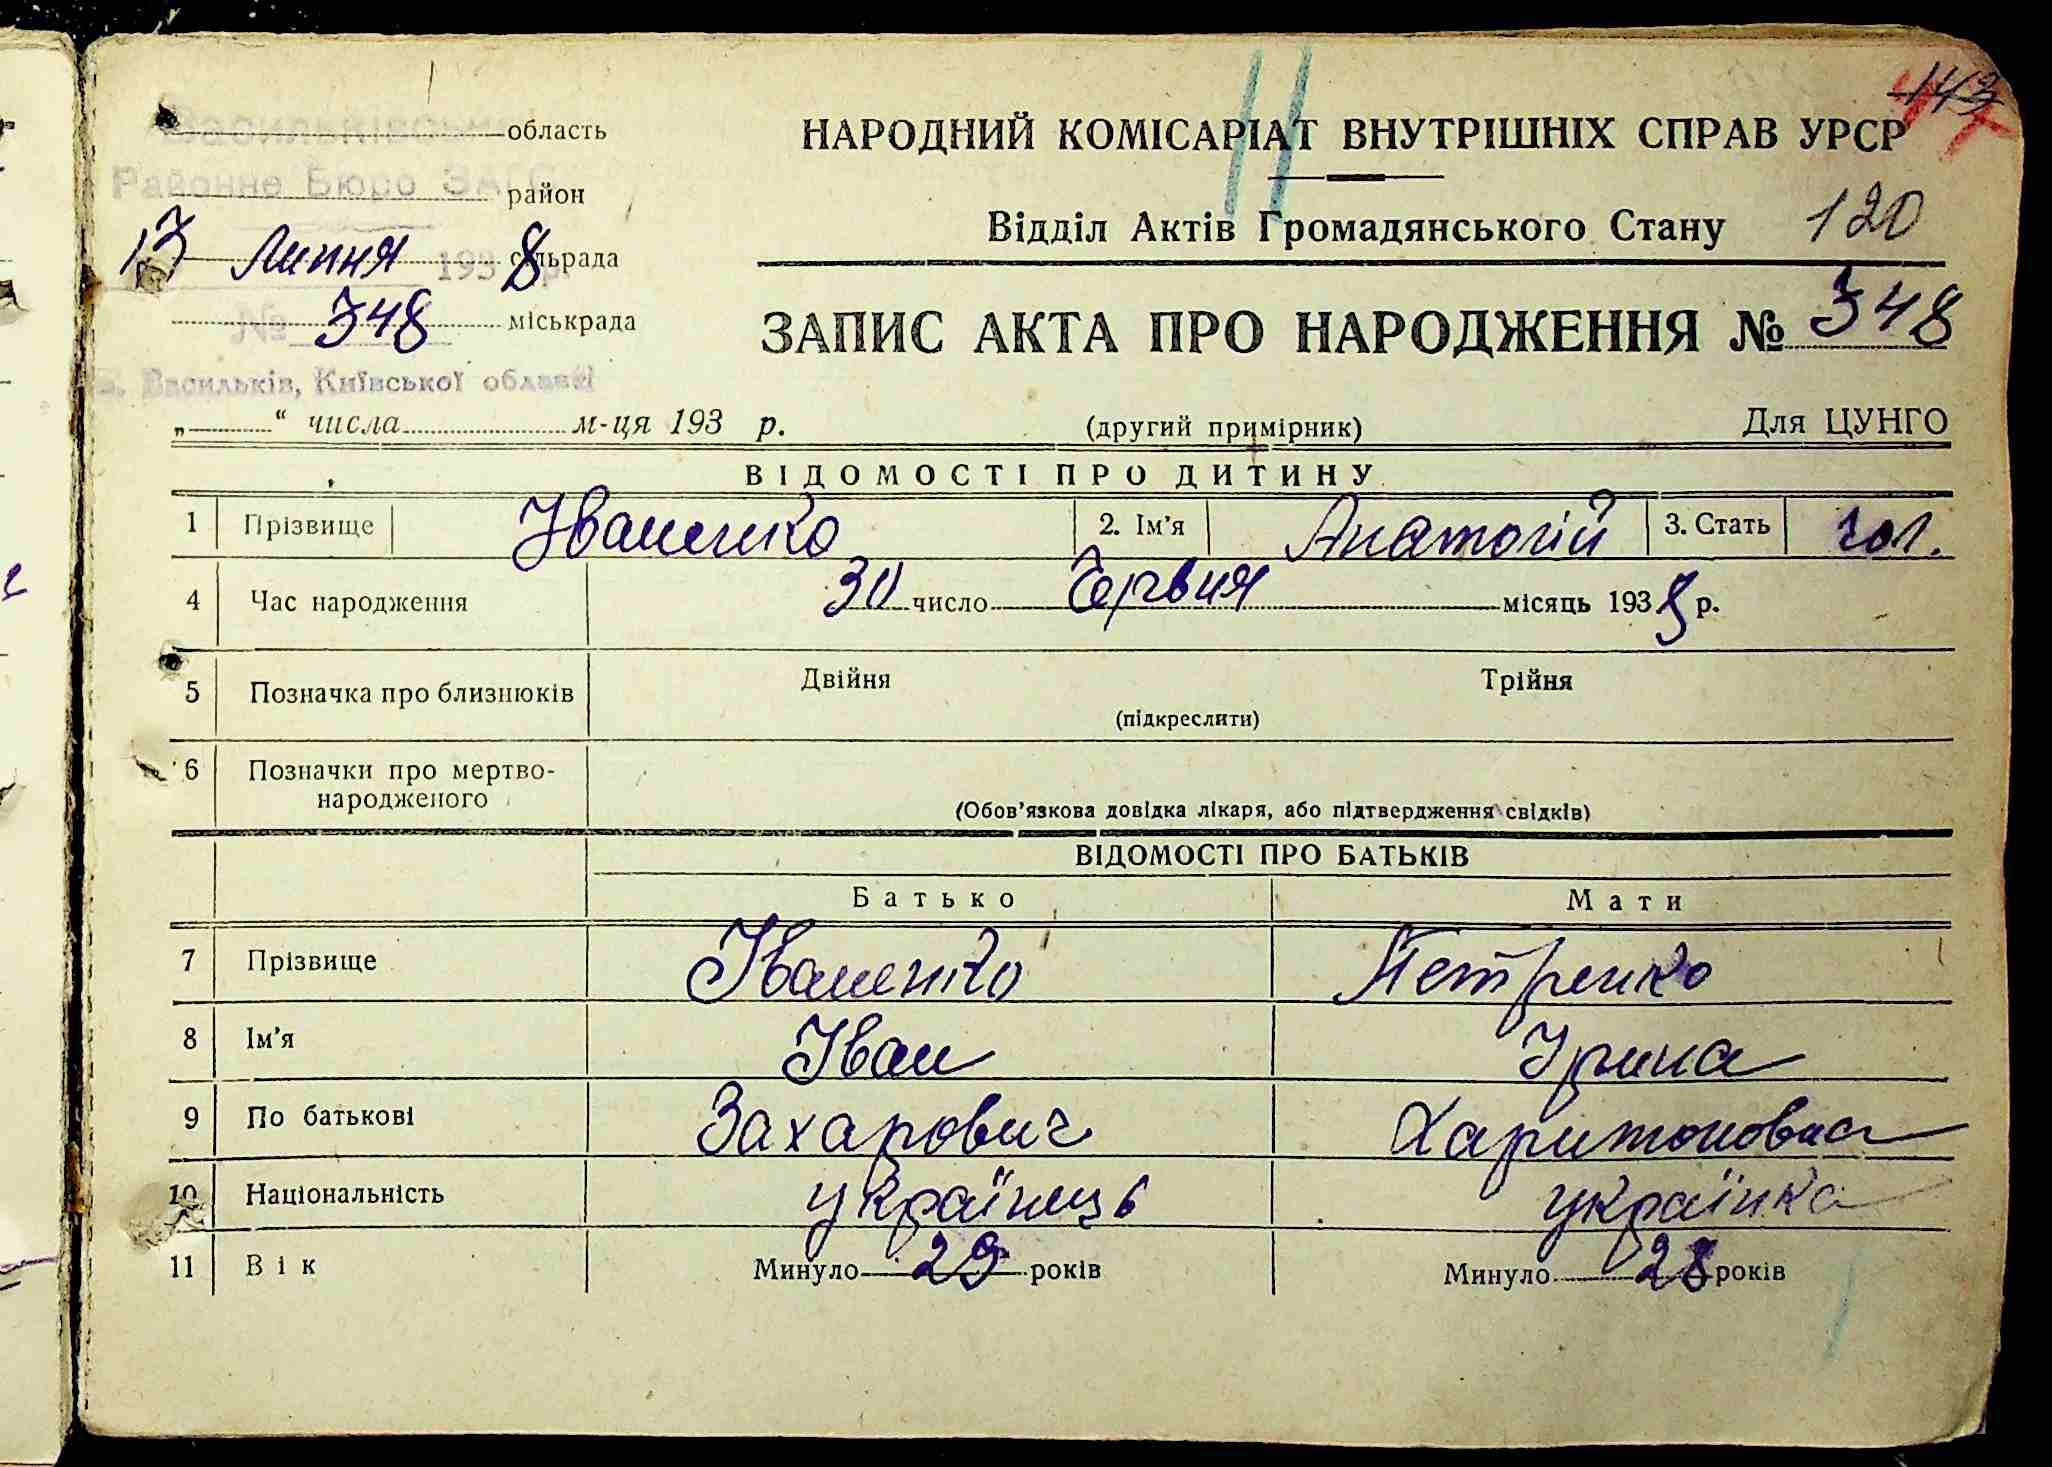 Васильківське область
Районне Бюро ЗАГС район
13 Липня 1938 р. сільрада
№ 348 міськрада
м. Васильків, Київської області
„ “ числа м-ця 193 р.
143
НАРОДНИЙ КОМІСАРІАТ ВНУТРІШНІХ СПРАВ УРСР
Відділ Актів Громадянського Стану 120
ЗАПИС АКТА ПРО НАРОДЖЕННЯ № 348
(другий примірник) Для ЦУНГО
ВІДОМОСТІ ПРО ДИТИНУ
1 Прізвище Іваненко 2. Ім’я Анатолій 3. Стать чол.
4 Час народження 30 число Червня місяць 1938 р.
5 Позначка про близнюків Двійня Трійня
(підкреслити)
6 Позначки про мертво-
народженого
(Обов’язкова довідка лікаря, або підтвердження свідків)
ВІДОМОСТІ ПРО БАТЬКІВ
Батько Мати
7 Прізвище Іваненко Петренко
8 Ім’я Іван Ірина
9 По батькові Захарович Харитоновна
10 Національність українець українка
11 Вік Минуло 29 років Минуло 28 років